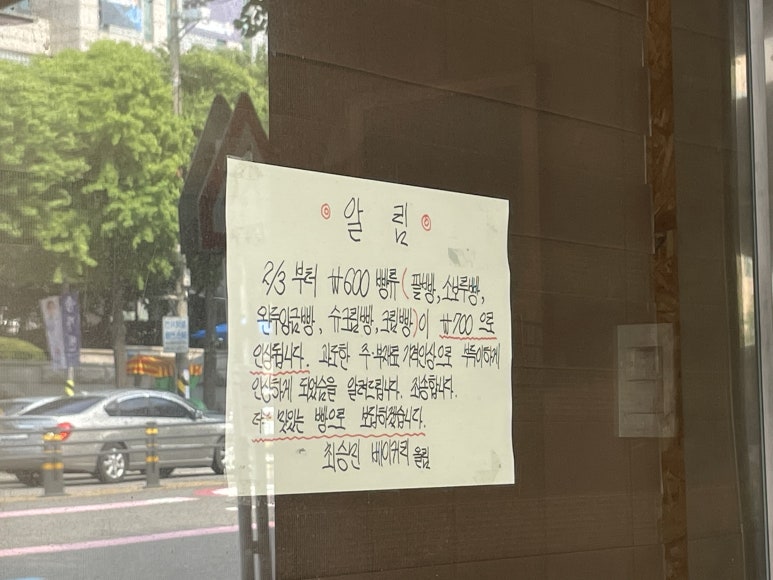 알 림
2/3 부터 ₩600 빵류 (팥빵, 소보루빵,
완두앙금빵, 슈크림빵, 크림빵)이 ₩700 으로
인상됩니다. 과도한 주·부재료 가격인상으로 부득이하게
인상하게 되었음을 알려드립니다. 죄송합니다.
더욱 맛있는 빵으로 보답하겠습니다.
최승민 베이커리 올림